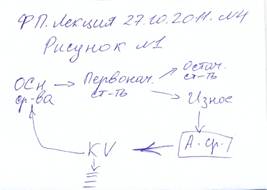 ФП. Лекция 27.10.2011. №4
Рисунок №1
Осн ср-ва
Первонач. ст-ть
Остат. ст-ть
Износ
А. ср.
KV